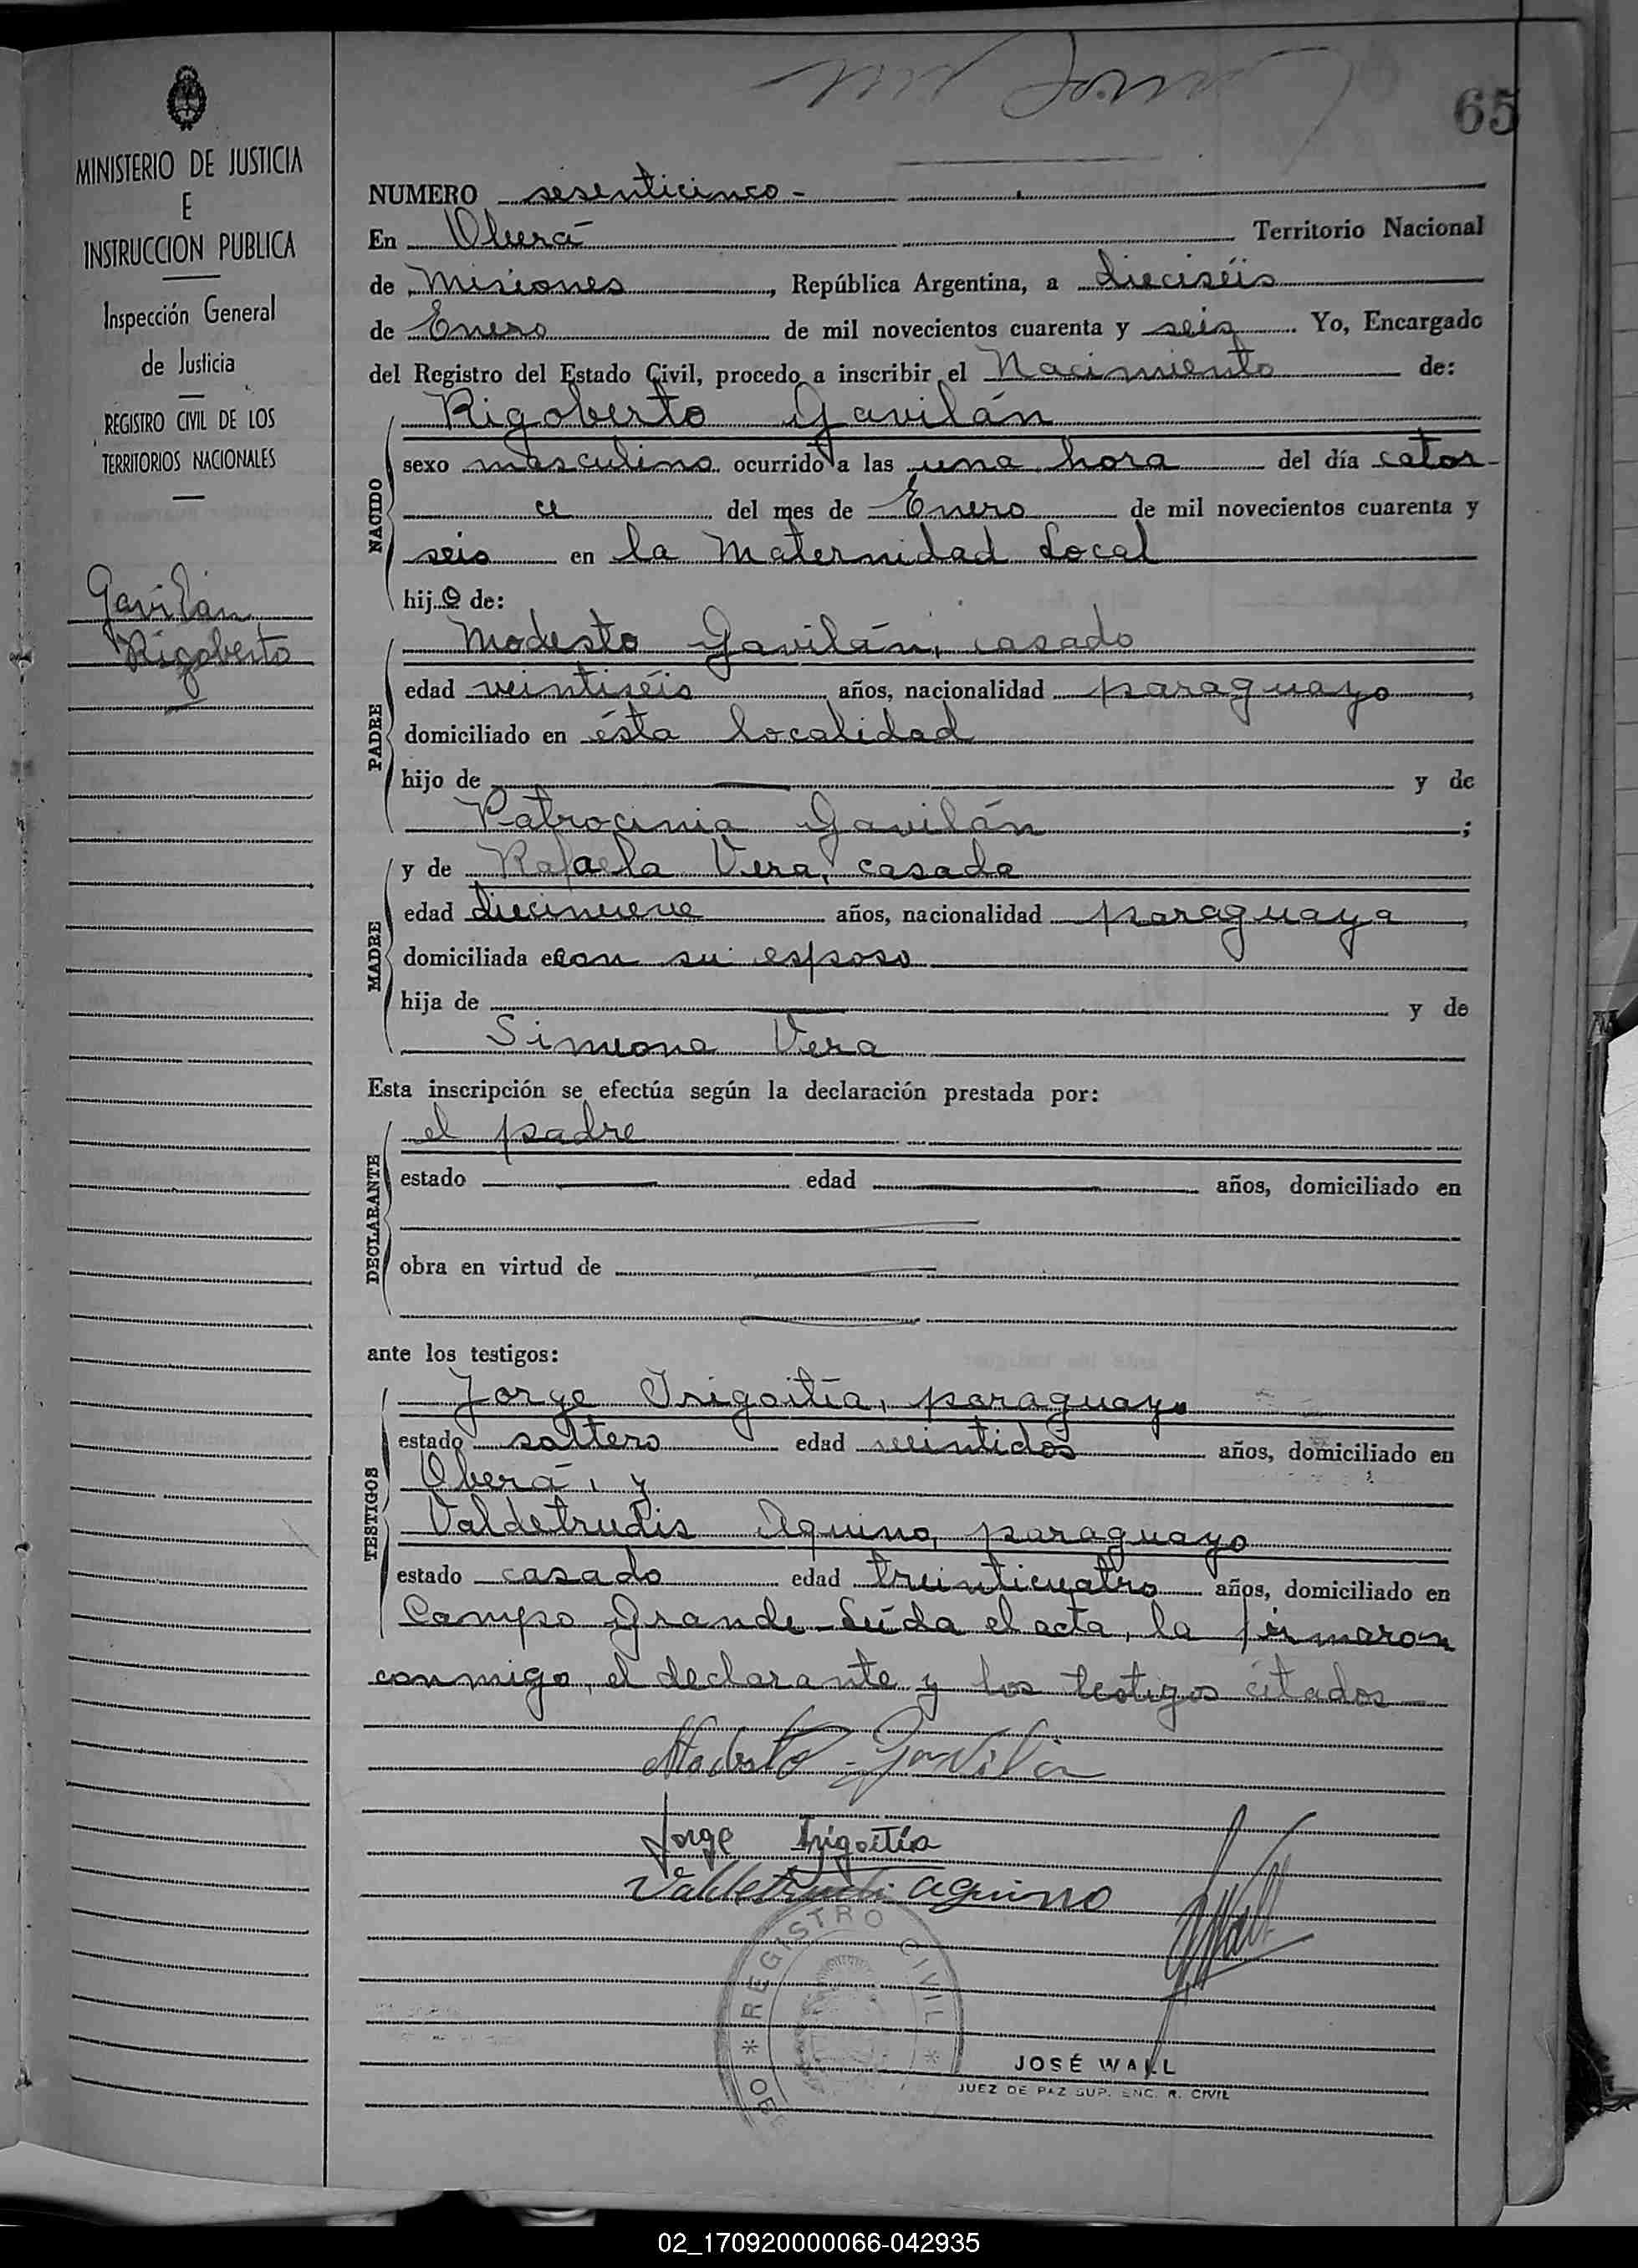 65
MINISTERIO DE JUSTICIA
E
INSTRUCCION PUBLICA
Inspección General
de Justicia
REGISTRO CIVIL DE LOS
TERRITORIOS NACIONALES
Gavilán
Rigoberto
NUMERO sesenticinco -
En Oberá Territorio Nacional
de Misiones, República Argentina, a dieciséis
de Enero de mil novecientos cuarenta y seis. Yo, Encargado
del Registro del Estado Civil, procedo a inscribir el Nacimiento de:
Rigoberto Gavilán
NACIDO
sexo masculino ocurrido a las una hora del día cator-
ce del mes de Enero de mil novecientos cuarenta y
seis en la Maternidad Local
hijo de:
Modesto Gavilán, casado
PADRE
edad veintiséis años, nacionalidad paraguayo,
domiciliado en ésta localidad
hijo de — y de
Patrocinia Gavilán;
y de Rafaela Vera, casada
MADRE
edad diecinueve años, nacionalidad paraguaya,
domiciliada con su esposo
hija de — y de
Simeona Vera
Esta inscripción se efectúa según la declaración prestada por:
el padre
DECLARANTE
estado — edad — años, domiciliado en
obra en virtud de —
ante los testigos:
Jorge Irigoitia, paraguayo
TESTIGOS
estado soltero edad veintidos años, domiciliado en
Oberá, y
Valdetrudis Aquino, paraguayo
estado casado edad treinticuatro años, domiciliado en
Campo Grande - Leída el acta, la firmaron
conmigo, el declarante y los testigos citados
Modesto Gavilán
Jorge Irigoitia
Valdetrudi aquino
REGISTRO CIVIL
JOSÉ WALL
JUEZ DE PAZ SUP. ENC. R. CIVIL
02_170920000066-042935